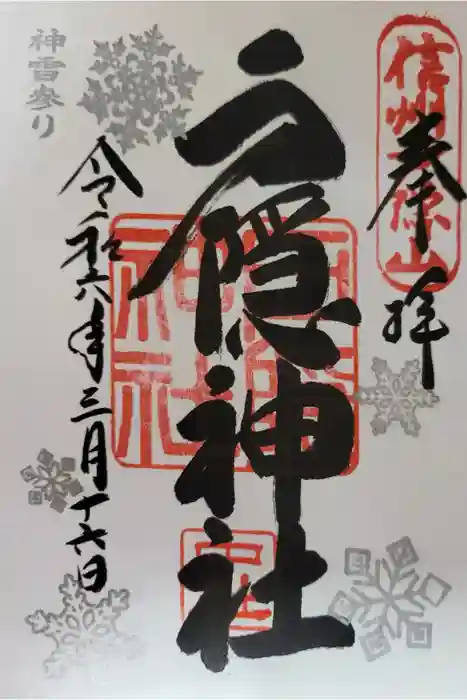 奉拝
信州戸隠山
戸隠神社
戸隠神社
中社
令和六年三月十六日
神雪参り